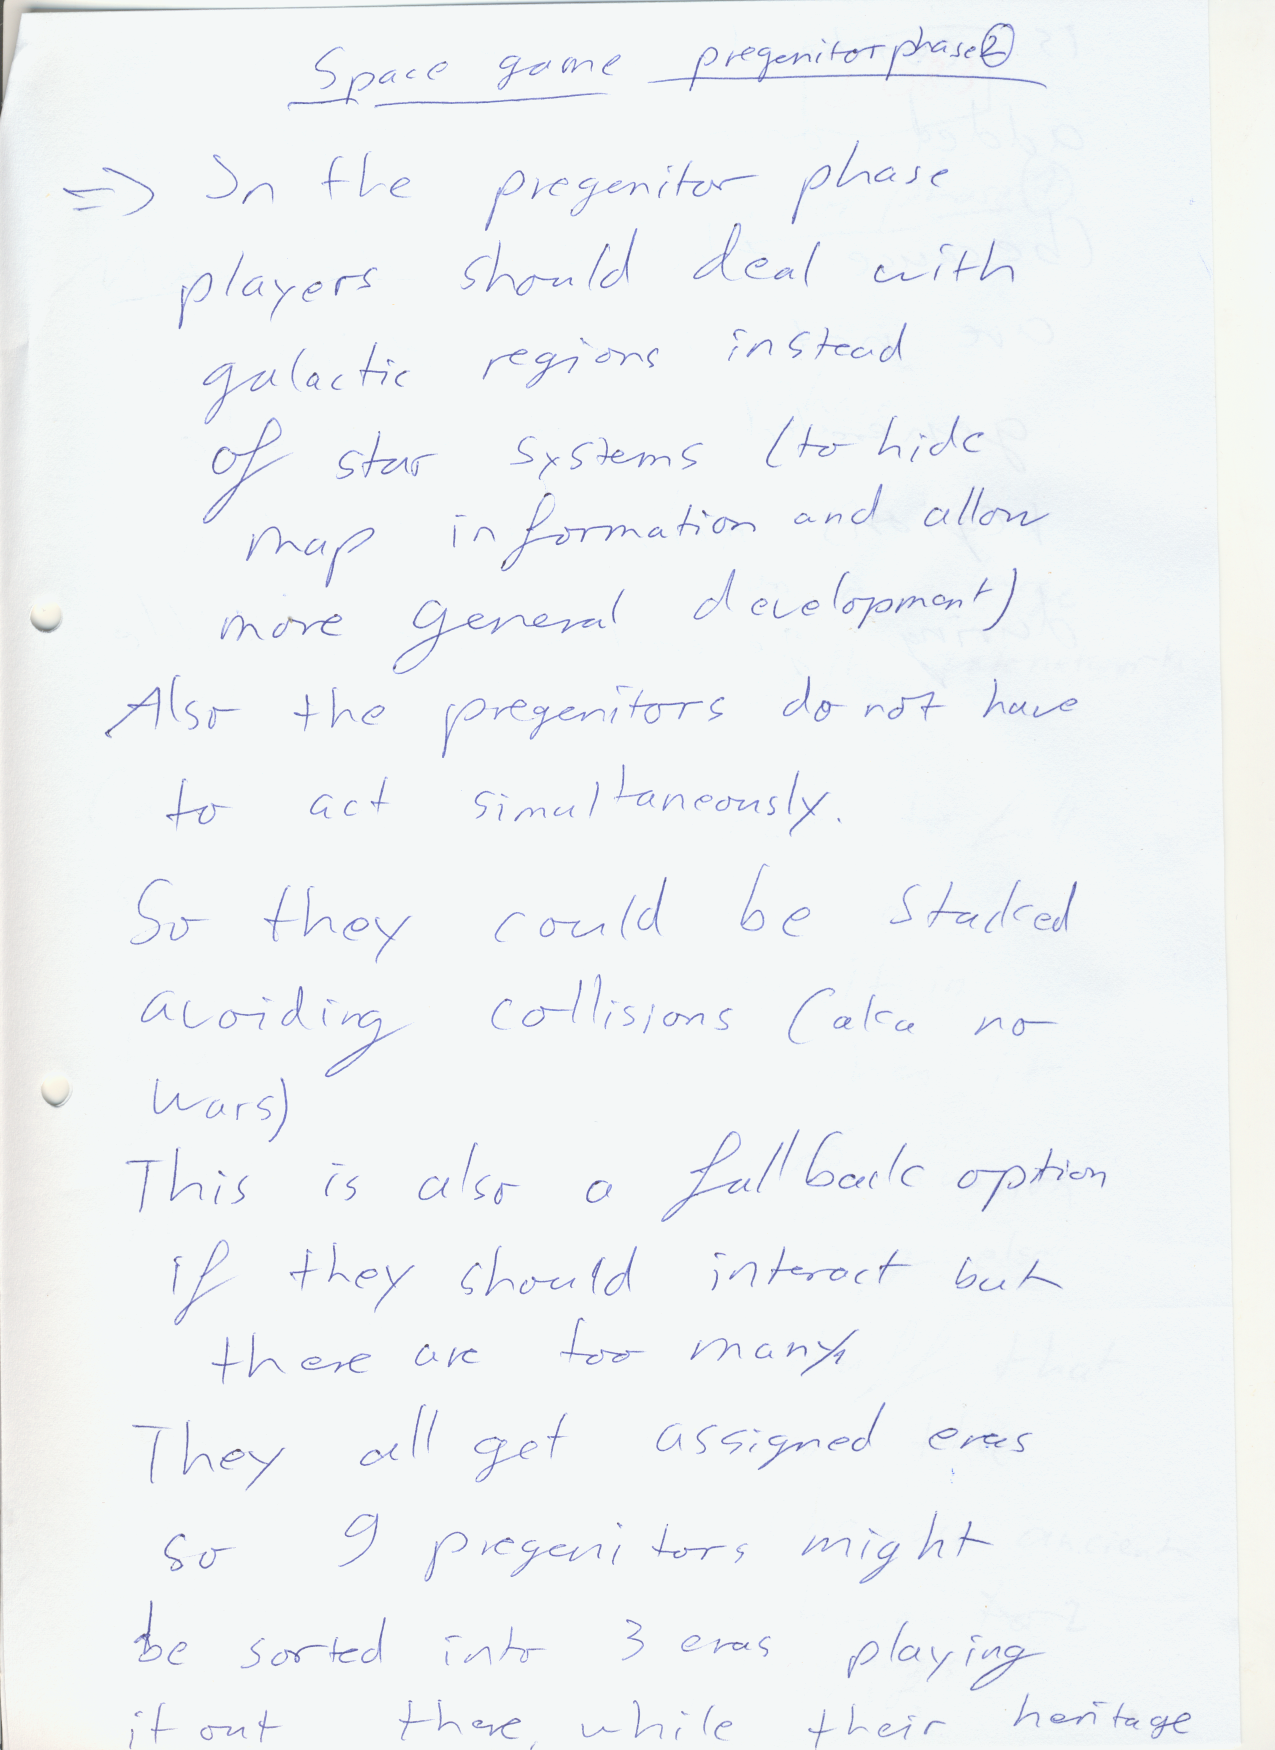 Space game pregenitorphase ②
=> In the pregenitor phase
players should deal with
galactic regions instead
of star systems (to hide
map information and allow
more general development)
Also the pregenitors do not have
to act simultaneously.
So they could be stacked
avoiding collisions (aka no
wars)
This is also a fallback option
if they should interact but
there are too many
They all get assigned eras
so 9 pregenitors might
be sorted into 3 eras playing
it out there, while their heritage